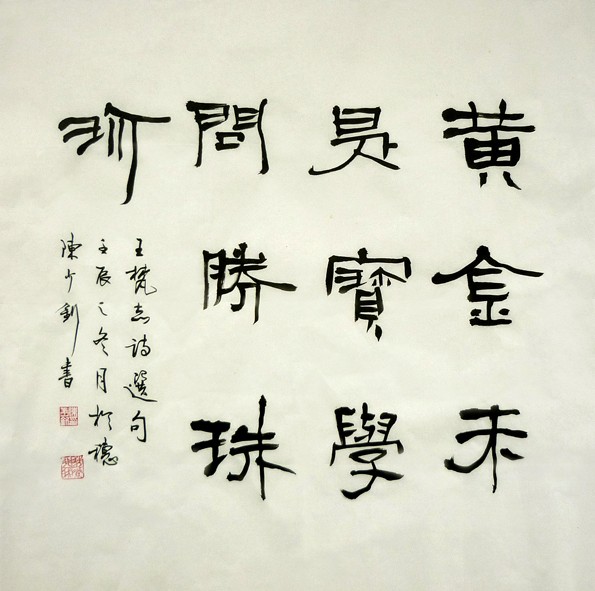 黄金未
是寶學
問勝珠
珎
王梵志詩選句
壬辰之冬月於穗
陳少釗書